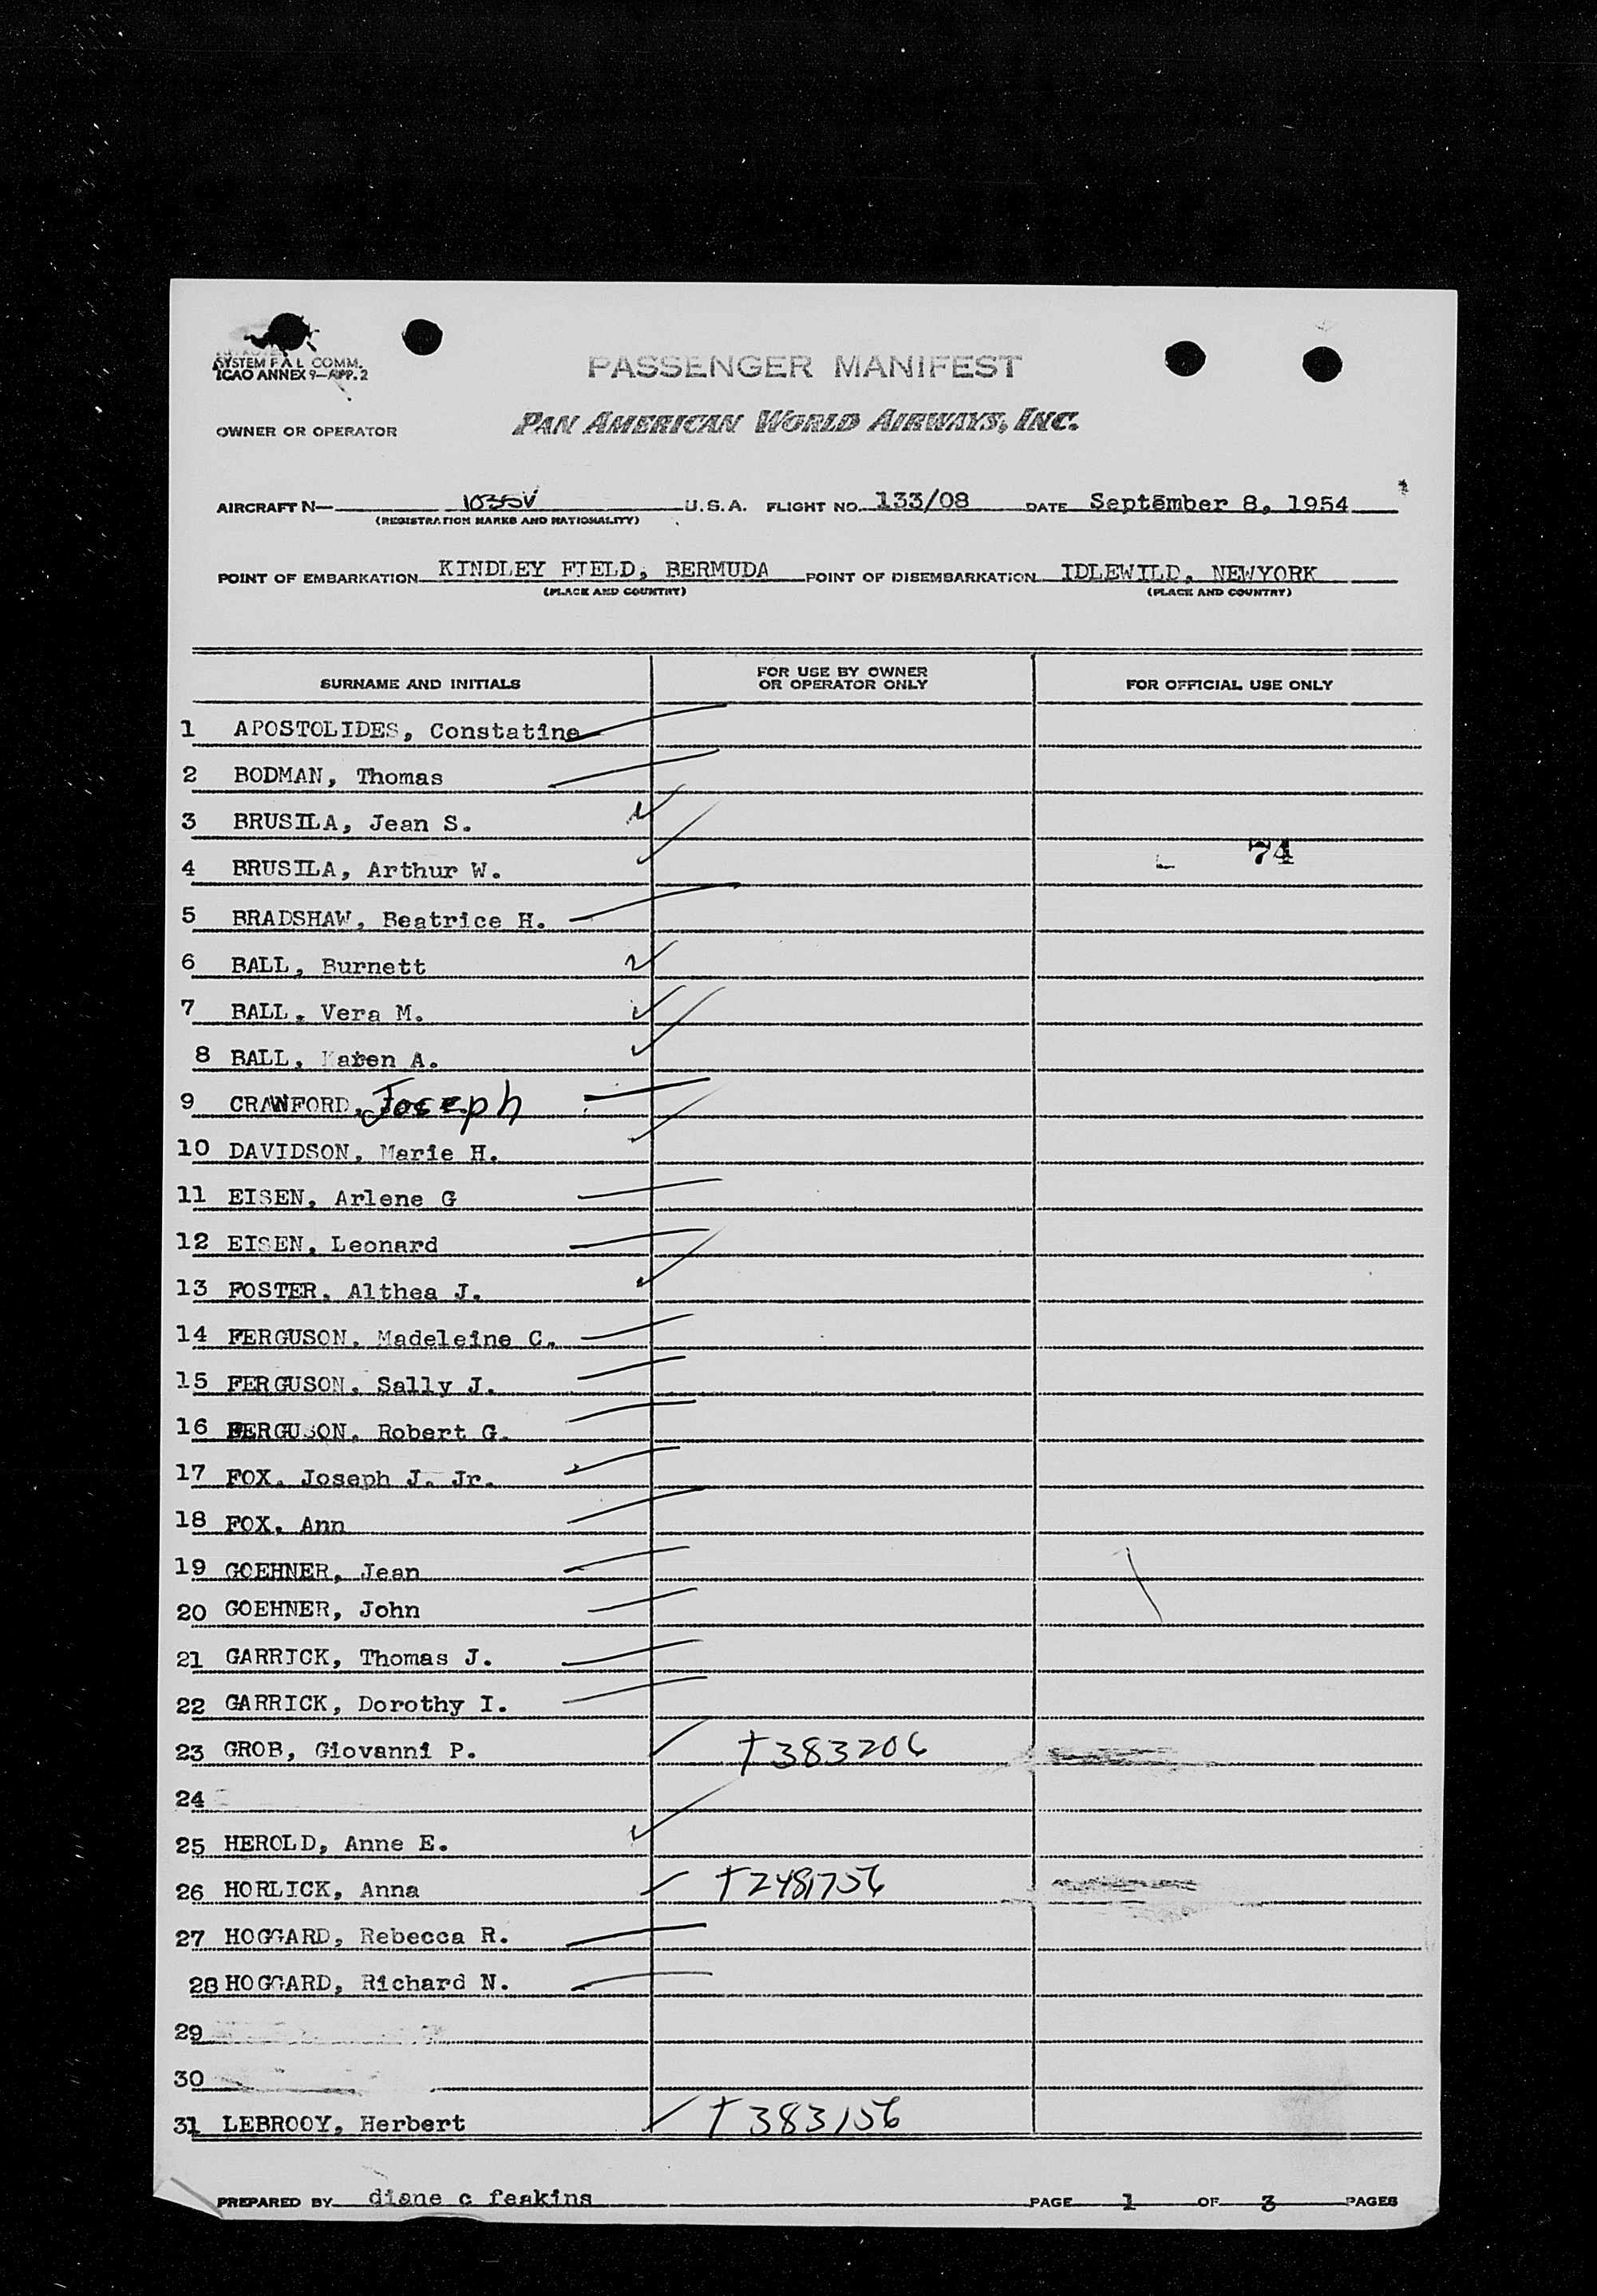 SYSTEM F A L COMM.
ICAO ANNEX 9—APP. 2
PASSENGER MANIFEST
OWNER OR OPERATOR PAN AMERICAN WORLD AIRWAYS, INC.
AIRCRAFT N— 1035V U.S.A. FLIGHT NO. 133/08 DATE September 8, 1954
(REGISTRATION MARKS AND NATIONALITY)
POINT OF EMBARKATION KINDLEY FIELD, BERMUDA POINT OF DISEMBARKATION IDLEWILD, NEWYORK
(PLACE AND COUNTRY) (PLACE AND COUNTRY)
SURNAME AND INITIALS FOR USE BY OWNER OR OPERATOR ONLY FOR OFFICIAL USE ONLY
1 APOSTOLIDES, Constatine
2 BODMAN, Thomas
3 BRUSILA, Jean S.
4 BRUSILA, Arthur W. 74
5 BRADSHAW, Beatrice H.
6 BALL, Burnett
7 BALL, Vera M.
8 BALL, Karen A.
9 CRAWFORD, Joseph
10 DAVIDSON, Marie H.
11 EISEN, Arlene G
12 EISEN, Leonard
13 FOSTER, Althea J.
14 FERGUSON, Madeleine C.
15 FERGUSON, Sally J.
16 FERGUSON, Robert G.
17 FOX, Joseph J. Jr.
18 FOX, Ann
19 GOEHNER, Jean
20 GOEHNER, John
21 GARRICK, Thomas J.
22 GARRICK, Dorothy I.
23 GROB, Giovanni P. T383206
24
25 HEROLD, Anne E.
26 HORLICK, Anna T2481756
27 HOGGARD, Rebecca R.
28 HOGGARD, Richard N.
29
30
31 LEBROOY, Herbert T383156
PREPARED BY diane c feakins PAGE 1 OF 3 PAGES